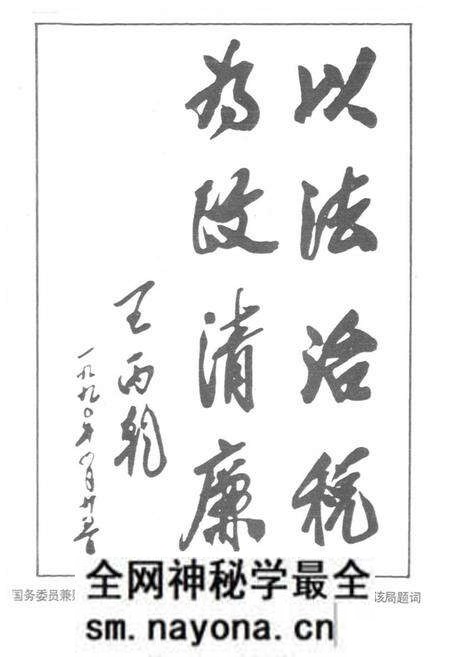 以法治税
为政清廉
王丙乾
一九九〇年月廿日
国务委员兼
该局题词
全网神秘学最全
sm.nayona.cn